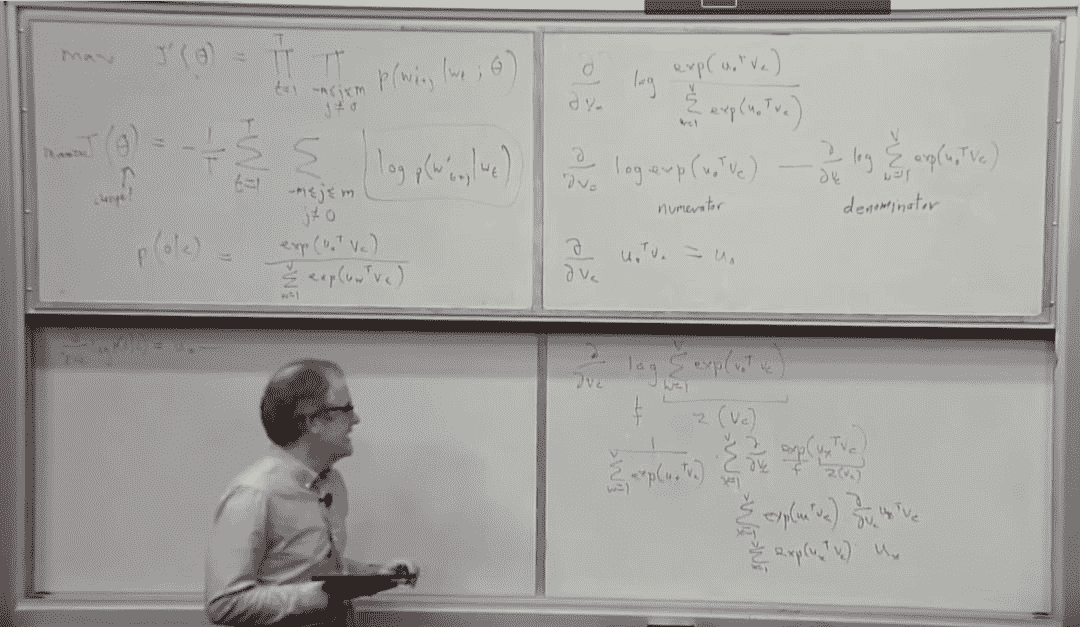 max J'(θ) = ∏_{t=1}^{T} ∏_{-m≤j≤m, j≠0} p(w'_{t+j} | w_t ; θ)
J(θ) = -1/T ∑_{t=1}^{T} ∑_{-m≤j≤m, j≠0} log p(w'_{t+j} | w_t)
p(o|c) = exp(u_o^T v_c) / ∑_{w=1}^{V} exp(u_w^T v_c)
∂/∂v_c log exp(u_o^T v_c) / ∑_{w=1}^{V} exp(u_o^T v_c)
∂/∂v_c log exp(u_o^T v_c) — ∂/∂v_c log ∑_{w=1}^{V} exp(u_o^T v_c)
numerator denominator
∂/∂v_c u_o^T v_c = u_o
∂/∂v_c log ∑_{w=1}^{V} exp(u_o^T v_c)
f z(v_c)
1 / ∑_{w=1}^{V} exp(u_o^T v_c) · ∑_{x=1}^{V} ∂/∂v_c exp(u_x^T v_c)
f z(v_c)
∑_{x=1}^{V} exp(u_x^T v_c) ∂/∂v_c u_x^T v_c
∑_{x=1}^{V} exp(u_x^T v_c) u_x